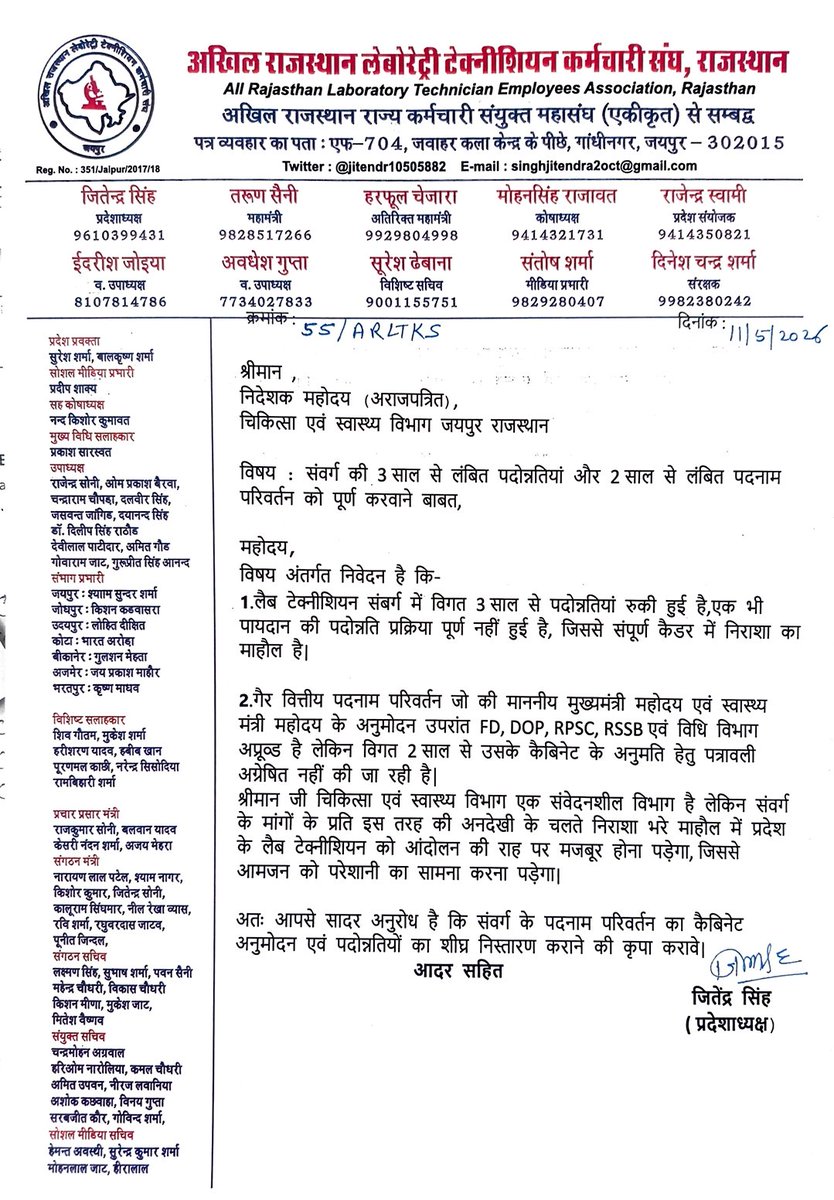 अखिल राजस्थान लेबोरेट्री टेक्नीशियन कर्मचारी संघ
जयपुर
Reg. No. : 351/Jaipur/2017/18
अखिल राजस्थान लेबोरेट्री टेक्नीशियन कर्मचारी संघ, राजस्थान
All Rajasthan Laboratory Technician Employees Association, Rajasthan
अखिल राजस्थान राज्य कर्मचारी संयुक्त महासंघ (एकीकृत) से सम्बद्व
पत्र व्यवहार का पता : एफ-704, जवाहर कला केन्द्र के पीछे, गांधीनगर, जयपुर - 302015
Twitter : @jitendr10505882 E-mail : singhjitendra2oct@gmail.com
जितेन्द्र सिंह तरूण सैनी हरफूल चेजारा मोहनसिंह राजावत राजेन्द्र स्वामी
प्रदेशाध्यक्ष महामंत्री अतिरिक्त महामंत्री कोषाध्यक्ष प्रदेश संयोजक
9610399431 9828517266 9929804998 9414321731 9414350821
ईदरीश जोइया अवधेश गुप्ता सूरेश ढेबाना संतोष शर्मा दिनेश चन्द्र शर्मा
व. उपाध्यक्ष व. उपाध्यक्ष विशिष्ट सचिव मीडिया प्रभारी संरक्षक
8107814786 7734027833 9001155751 9829280407 9982380242
क्रमांक : 55/ARLTKS दिनांक : 11/5/2026
प्रदेश प्रवक्ता
सुरेश शर्मा, बालकृष्ण शर्मा
सोशल मीडिया प्रभारी
प्रदीप शाक्य
सह कोषाध्यक्ष
नन्द किशोर कुमावत
मुख्य विधि सलाहकार
प्रकाश सारस्वत
उपाध्यक्ष
राजेन्द्र सोनी, ओम प्रकाश बैरवा,
चन्द्राराम चौपड़ा, दलवीर सिंह,
जसवन्त जांगिड, दयानन्द सिंह
डॉ. दिलीप सिंह राठौड
देवीलाल पाटीदार, अमित गौड
गोवाराम जाट, गुरूप्रीत सिंह आनन्द
संभाग प्रभारी
जयपुर : श्याम सुन्दर शर्मा
जोधपुर : किशन कडवासरा
उदयपुर : लोहित दीक्षित
कोटा : भारत अरोड़ा
बीकानेर : गुलशन मेहता
अजमेर : जय प्रकाश माहौर
भरतपुर : कृष्ण माधव
विशिष्ट सलाहकार
शिव गौतम, मुकेश शर्मा
हरीशरण यादव, हबीब खान
पूरणमल काछी, नरेन्द्र सिसोदिया
रामबिहारी शर्मा
प्रचार प्रसार मंत्री
राजकुमार सोनी, बलवान यादव
केसरी नंदन शर्मा, अजय मेहरा
संगठन मंत्री
नारायण लाल पटेल, श्याम नागर,
किशोर कुमार, जितेन्द्र सोनी,
कालूराम सिंघमार, नील रेखा व्यास,
रवि शर्मा, रघुवरदास जाटव,
पूनीत जिन्दल,
संगठन सचिव
लक्ष्मण सिंह, सुभाष शर्मा, पवन सैनी
महेन्द्र चौधरी, विकास चौधरी
किशन मीणा, मुकेश जाट,
मितेश वैष्णव
संयुक्त सचिव
चन्द्रमोहन अग्रवाल
हरिओम नारोलिया, कमल चौधरी
अमित उपवन, नीरज लवानिया
अशोक कछवाहा, विनय गुप्ता
सरबजीत कौर, गोविन्द शर्मा,
सोशल मीडिया सचिव
हेमन्त अवस्थी, सुरेन्द्र कुमार शर्मा
मोहनलाल जाट, हीरालाल
श्रीमान ,
निदेशक महोदय (अराजपत्रित),
चिकित्सा एवं स्वास्थ्य विभाग जयपुर राजस्थान
विषय : संवर्ग की 3 साल से लंबित पदोन्नतियां और 2 साल से लंबित पदनाम
परिवर्तन को पूर्ण करवाने बाबत,
महोदय,
विषय अंतर्गत निवेदन है कि-
1.लैब टेक्नीशियन संबर्ग में विगत 3 साल से पदोन्नतियां रुकी हुई है,एक भी
पायदान की पदोन्नति प्रक्रिया पूर्ण नहीं हुई है, जिससे संपूर्ण कैडर में निराशा का
माहौल है।
2.गैर वित्तीय पदनाम परिवर्तन जो की माननीय मुख्यमंत्री महोदय एवं स्वास्थ्य
मंत्री महोदय के अनुमोदन उपरांत FD, DOP, RPSC, RSSB एवं विधि विभाग
अप्रूव्ड है लेकिन विगत 2 साल से उसके कैबिनेट के अनुमति हेतु पत्रावली
अग्रेषित नहीं की जा रही है।
श्रीमान जी चिकित्सा एवं स्वास्थ्य विभाग एक संवेदनशील विभाग है लेकिन संवर्ग
के मांगों के प्रति इस तरह की अनदेखी के चलते निराशा भरे माहौल में प्रदेश
के लैब टेक्नीशियन को आंदोलन की राह पर मजबूर होना पड़ेगा, जिससे
आमजन को परेशानी का सामना करना पड़ेगा।
अतः आपसे सादर अनुरोध है कि संवर्ग के पदनाम परिवर्तन का कैबिनेट
अनुमोदन एवं पदोन्नतियों का शीघ्र निस्तारण कराने की कृपा करावे।
आदर सहित
जितेंद्र सिंह
( प्रदेशाध्यक्ष)